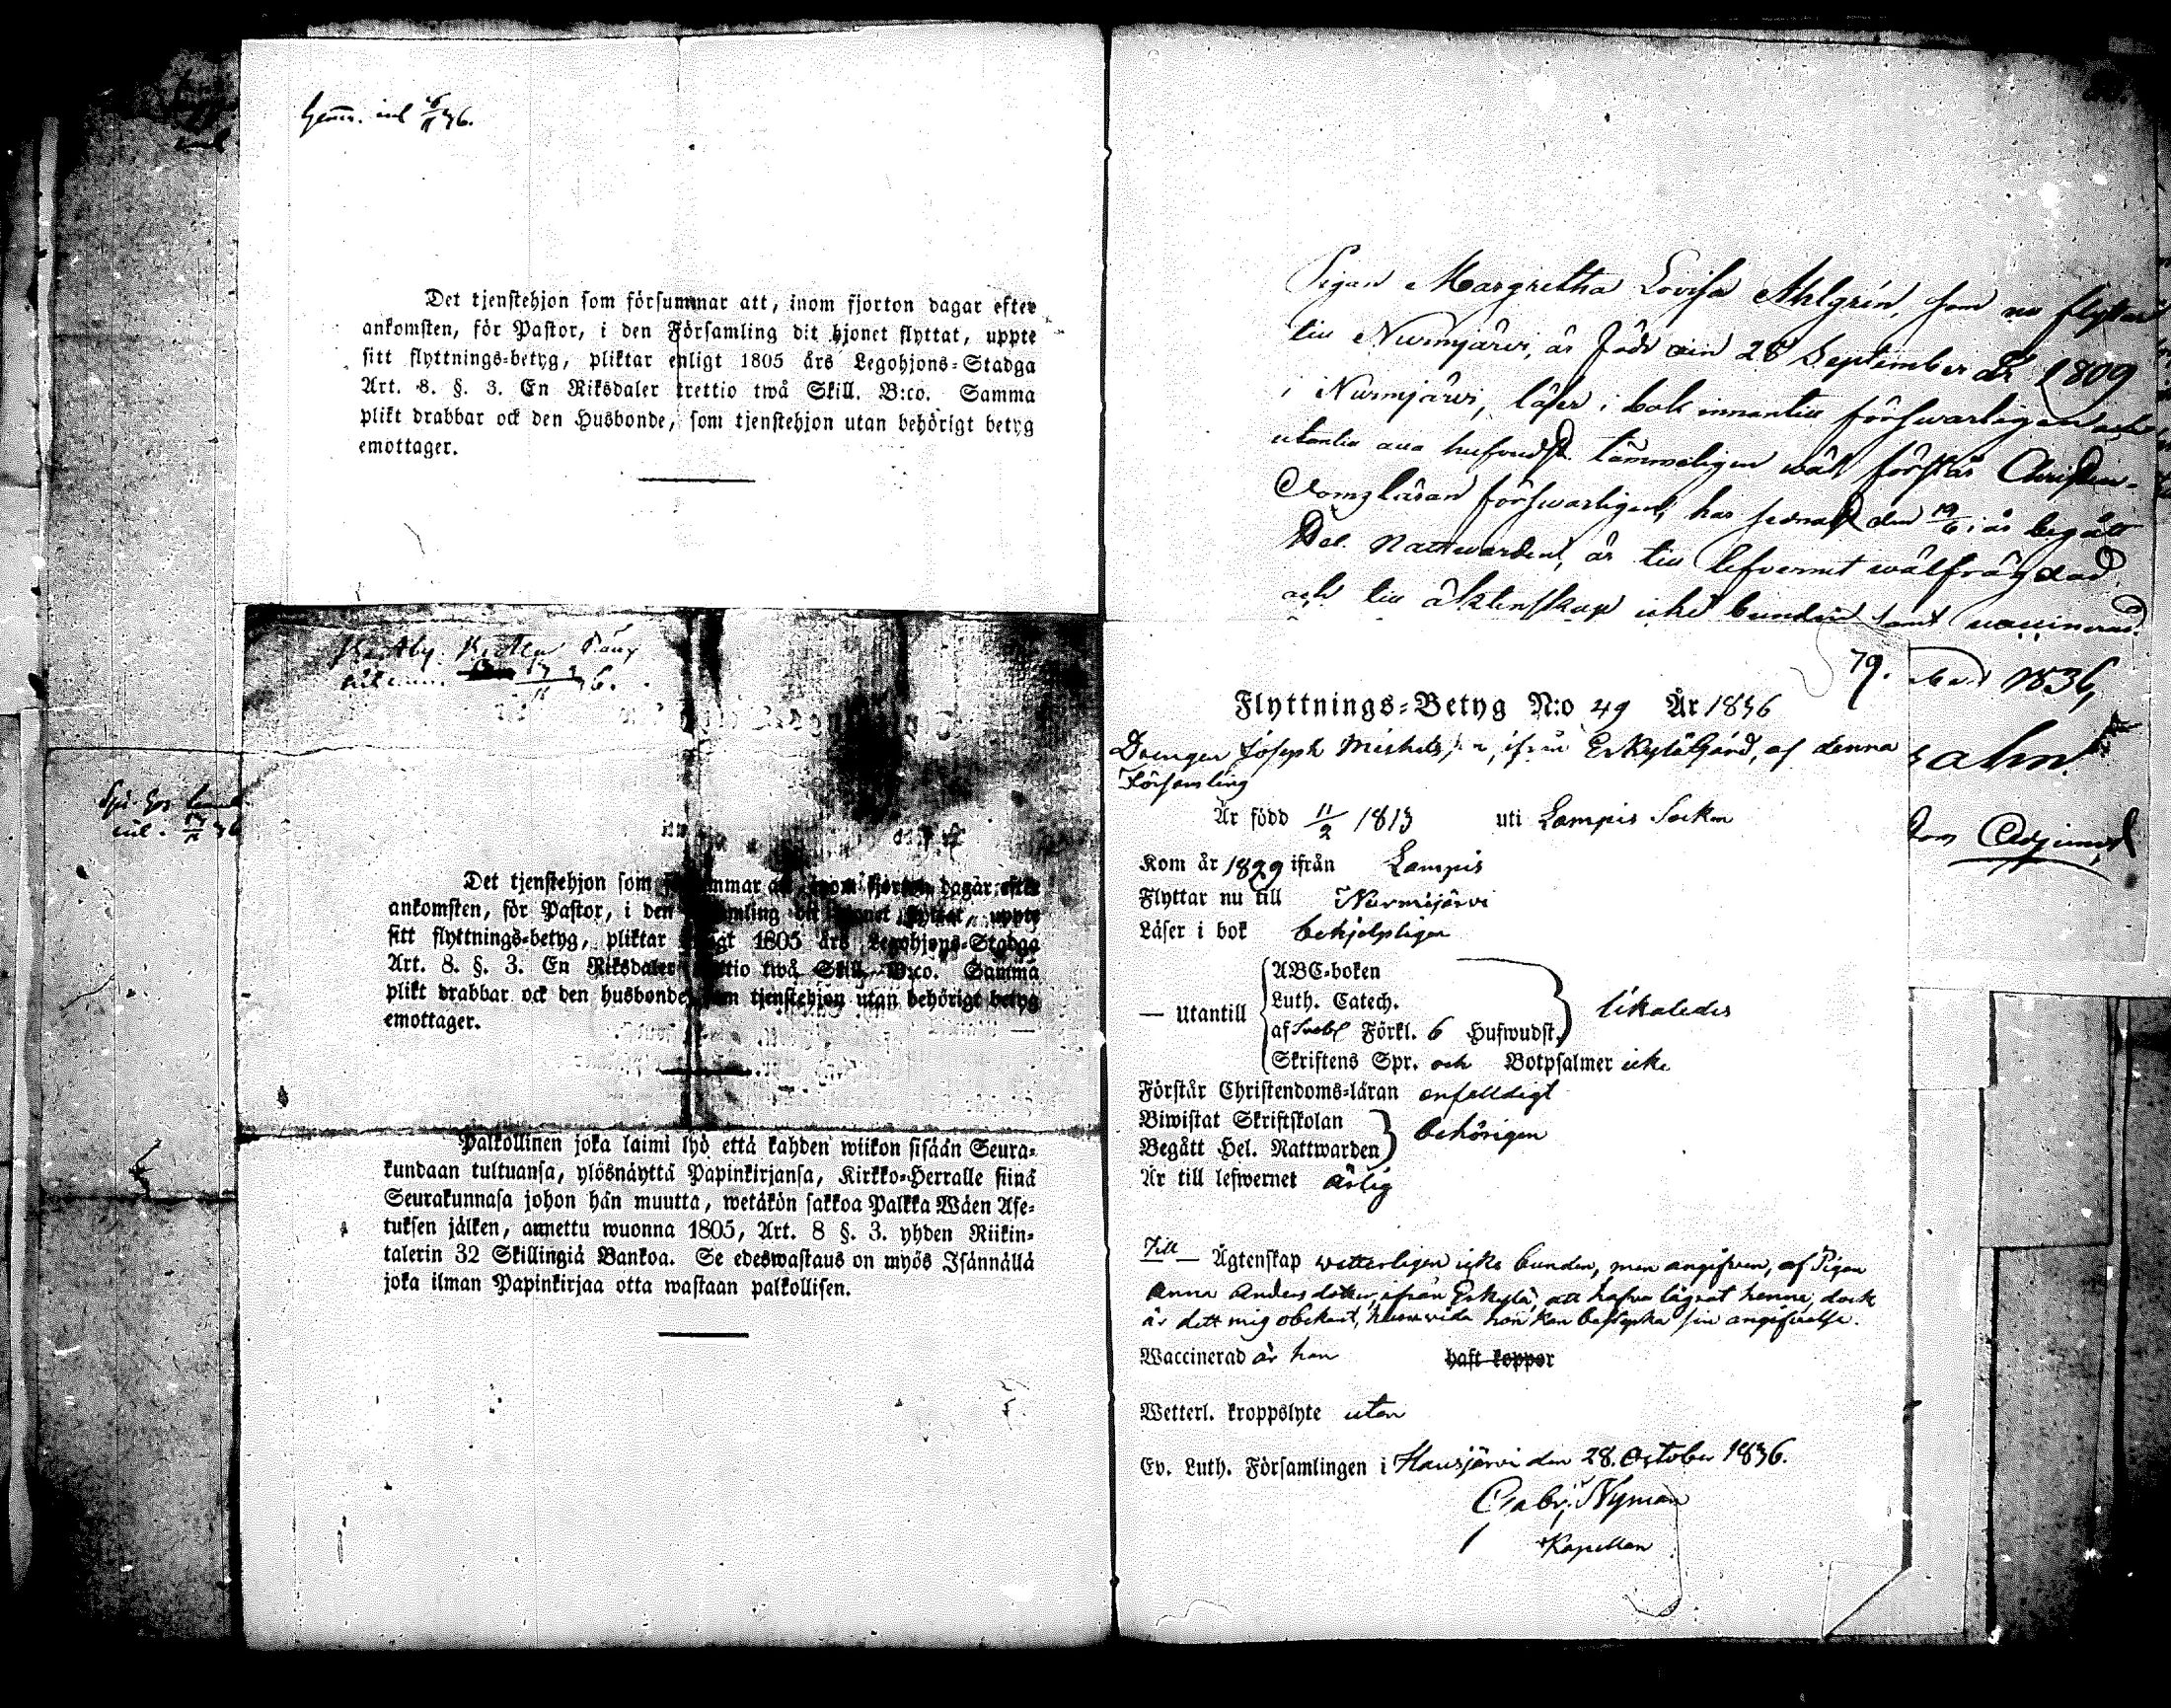 Det tjenstehjon som försummar att, inom fjorton dagar efter
ankomsten, för Pastor, i den Församling dit hjonet flyttat, uppte
sitt flyttnings-betyg, pliktar enligt 1805 års Legohjons-Stadga
Art. 8. §. 3. En Riksdaler trettio twå Skill. B:co. Samma
plikt drabbar ock den Husbonde, som tjenstehjon utan behörigt betyg
emottager.
Det tjenstehjon som försummar att, inom fjorton dagar efter
ankomsten, för Pastor, i den Församling dit hjonet flyttat, uppte
sitt flyttnings-betyg, pliktar enligt 1805 års Legohjons-Stadga
Art. 8. §. 3. En Riksdaler trettio twå Skill. B:co. Samma
plikt drabbar ock den husbonde, som tjenstehjon utan behörigt betyg
emottager.
Palkollinen joka laimi lyö että kahden wiikon sisään Seura-
kundaan tultuansa, ylösnäyttä Papinkirjansa, Kirkko-Herralle siinä
Seurakunnasa johon hän muutta, wetäkön sakkoa Palkka Wäen Ase-
tuksen jälken, annettu wuonna 1805, Art. 8 §. 3. yhden Riikin-
talerin 32 Skillingiä Bankoa. Se edeswastaus on myös Isännällä
joka ilman Papinkirjaa otta wastaan palkollisen.
Pigan Margretha Lovisa Ahlgrén, som nu flyttar
till Nurmijärvi, är född den 28 September år 1809
i Nurmijärvi, läser i bok innantill försvarligen och
utantill alla hufvudst. tämmeligen wäl förstår Christen-
domsläran försvarligen, har sednast den 19/6 i år begått
Hel. Nattvarden, är till lefvernet wälfrägdad
och till äktenskap icke bunden samt vaccinerad.
1836,
Adjunct
79.
Flyttnings-Betyg N:o 49 År 1836
Drengen Joseph Michelsson, ifrån Erkylä Gård, af denna
Församling
Är född 11/2 1813 uti Lampis Socken
Kom år 1829 ifrån Lampis
Flyttar nu till Nurmijärvi
Läser i bok behjelpligen
— Utantill
ABC-boken
Luth. Catech.
af Svebel Förkl. 6 Hufwudst. likaledes
Skriftens Spr. och Botpsalmer icke
Förstår Christendoms-läran enfaldigt
Biwistat Skriftskolan
Begått Hel. Nattwarden behörigen
Är till lefwernet ärlig
Till — Ägtenskap vetterligen icke bunden, men angifven, af Pigan
Anna Andersdotter, ifrån Erkylä, att hafva lägrat henne, dock
är dett mig obekant, huruvida hon kan bestyrka sin angifvelse.
Waccinerad är han haft koppor
Wetterl. kroppslyte utan
Ev. Luth. Församlingen i Hausjärvi den 28. October 1836.
Gabr. Nyman
Kapellan